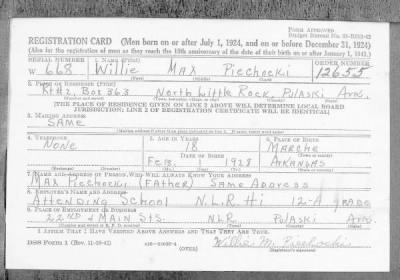 Form Approved
REGISTRATION CARD (Men born on or after July 1, 1924, and on or before December 31, 1924)
(Also for the registration of men as they reach the 18th anniversary of the date of their birth on or after January 1, 1943.)
SERIAL NUMBER 1. NAME (Print) ORDER NUMBER
W 668 Willie Max Piechocki 12655
(First) (Middle) (Last)
2. PLACE OF RESIDENCE (Print)
Rt#2, Box 363 North Little Rock, Pulaski Ark.
(Number and street) (Town, township, village, or city) (County) (State)
[THE PLACE OF RESIDENCE GIVEN ON LINE 2 ABOVE WILL DETERMINE LOCAL BOARD
JURISDICTION; LINE 2 OF REGISTRATION CERTIFICATE WILL BE IDENTICAL]
3. MAILING ADDRESS
SAME
4. TELEPHONE 5. AGE IN YEARS 6. PLACE OF BIRTH
NONE 18 MARCHE
DATE OF BIRTH (Town or county)
Feb. 1 1928 ARKANSAS
(Exchange) (Number) (Mo.) (Day) (Yr.) (State or country)
7. NAME AND ADDRESS OF PERSON WHO WILL ALWAYS KNOW YOUR ADDRESS
Max Piechocki (FATHER) SAME ADDRESS
8. EMPLOYER'S NAME AND ADDRESS
Attending School N.L.R. Hi 12-A GRADE
9. PLACE OF EMPLOYMENT OR BUSINESS
22ND & MAIN STS. NLR Pulaski Ark.
(Number and street or R. F. D. number) (Town) (County) (State)
I AFFIRM THAT I HAVE VERIFIED ABOVE ANSWERS AND THAT THEY ARE TRUE.
DSS Form 1 (Rev. (OVER) Willie M. Piechocki
(Registrant's signature)